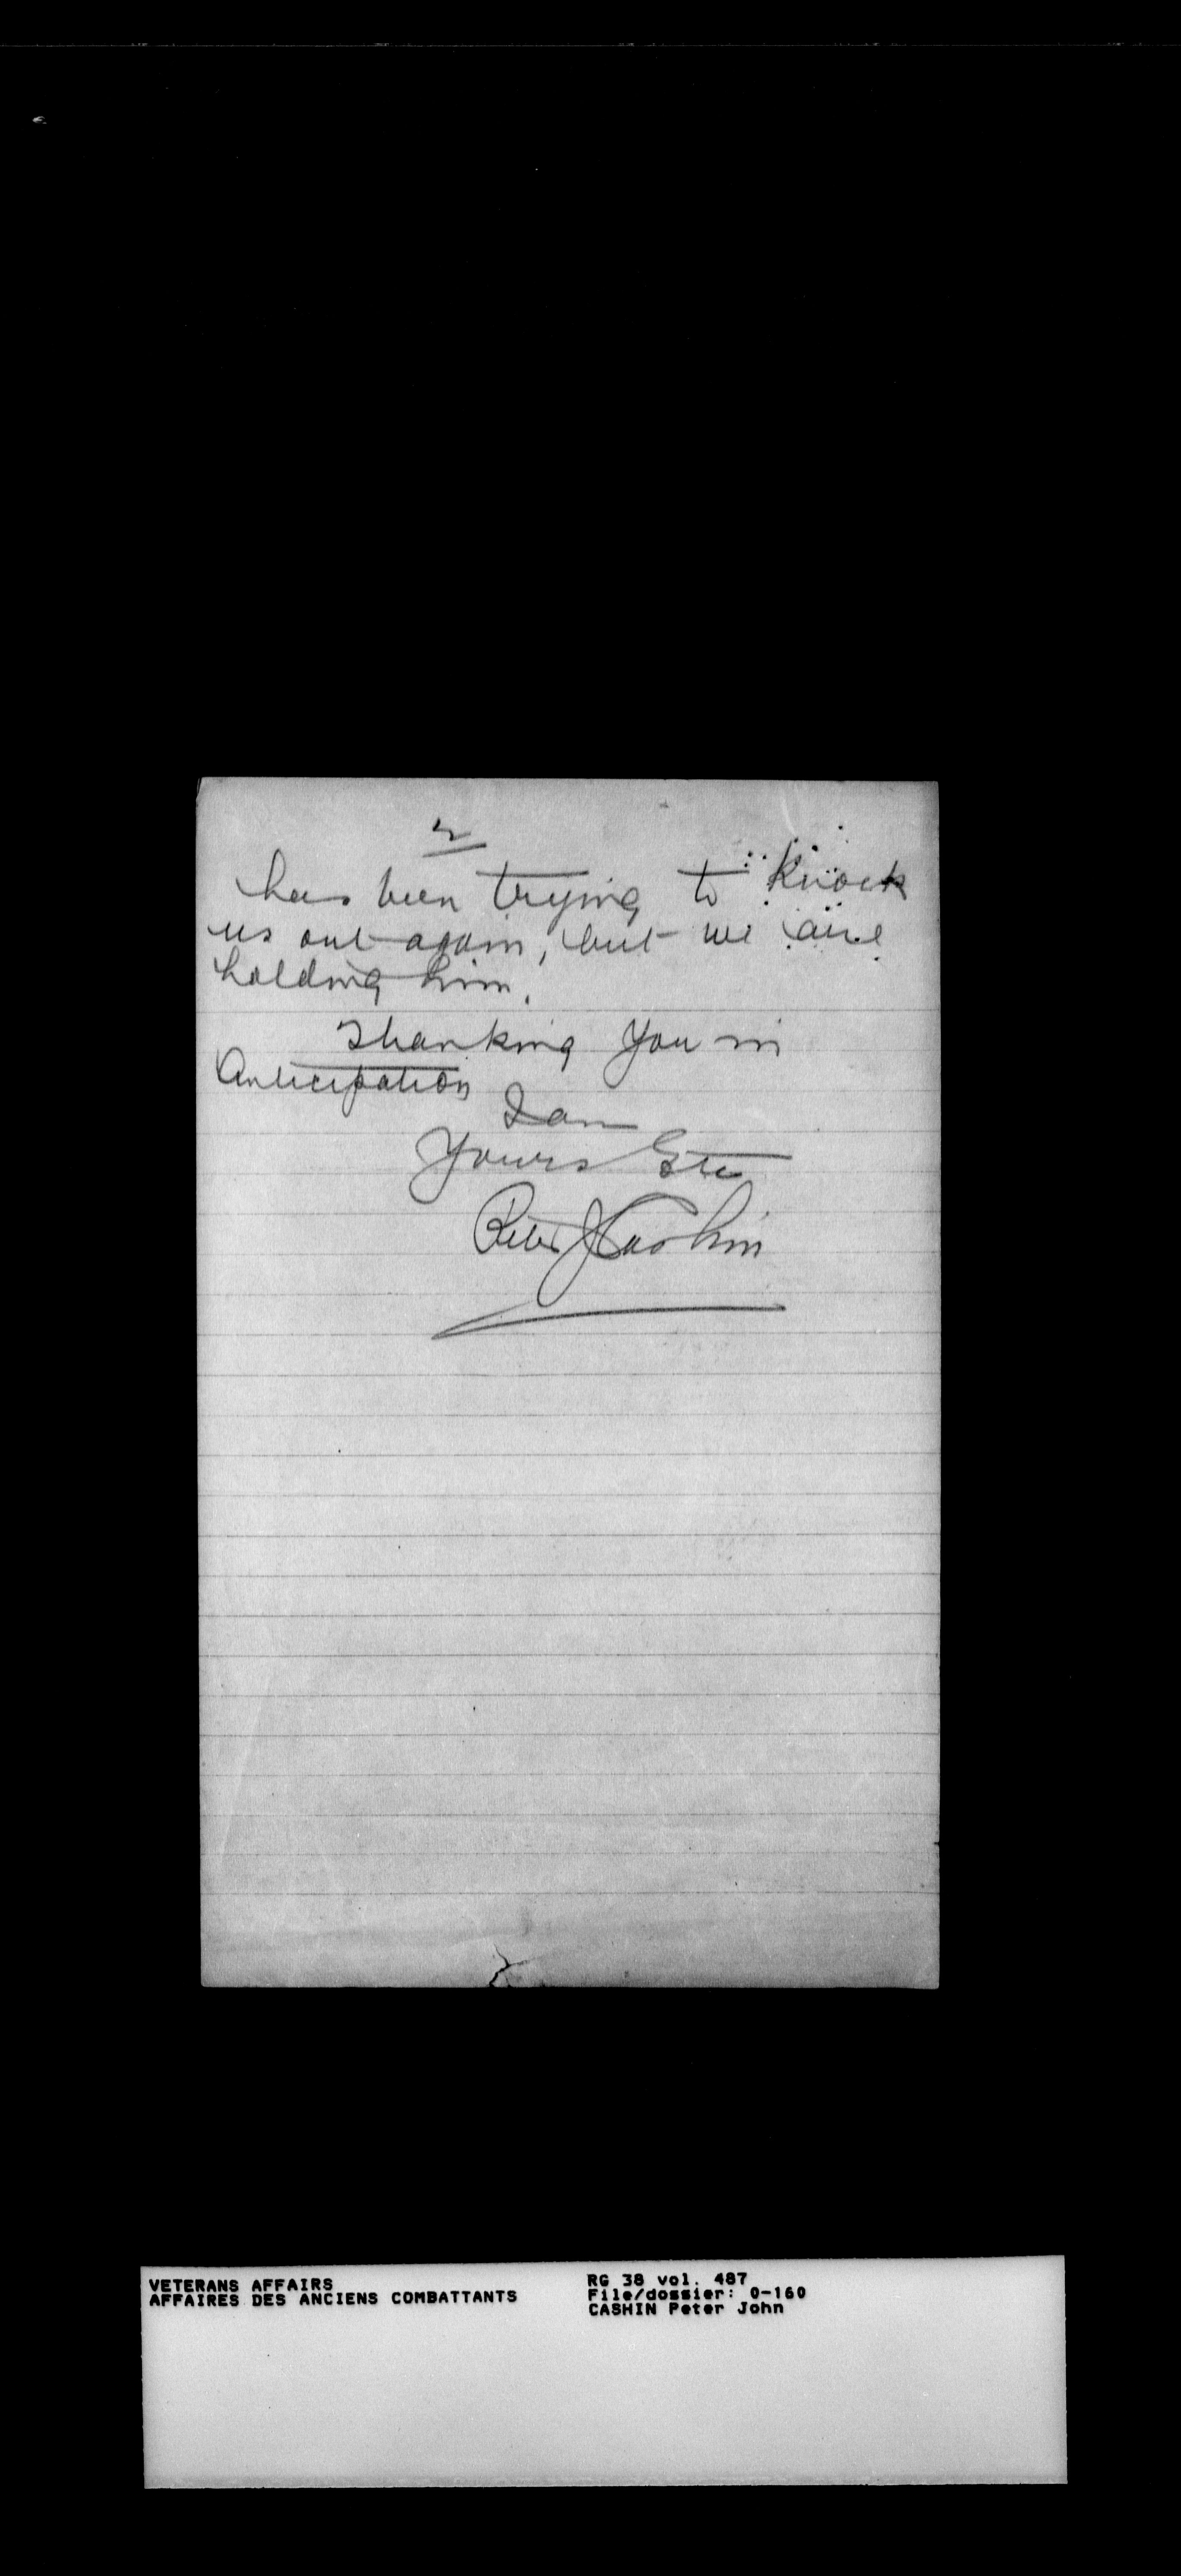 2
has been trying to knock
us out again, but we are
holding him.
Thanking You in
Anticipation
I am
Yours Etc
Peter J Cashin
VETERANS AFFAIRS
AFFAIRES DES ANCIENS COMBATTANTS
RG 38 vol. 487
File/dossier: 0-160
CASHIN Peter John